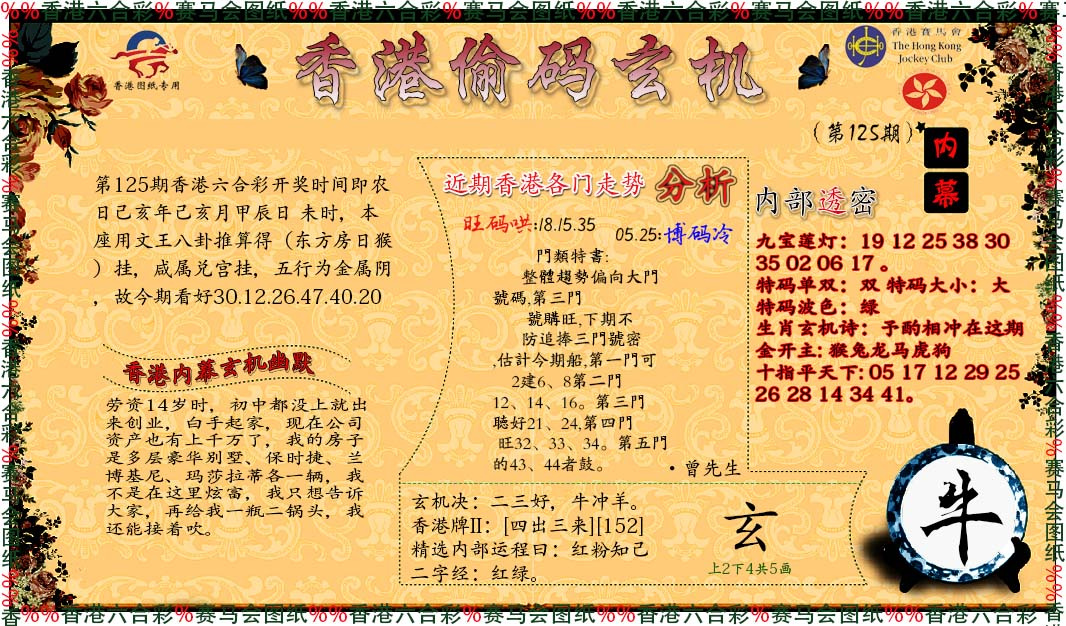 %%香港六合彩%赛马会图纸%%香港六合彩%赛马会图纸%%香港六合彩%赛马会图纸%%香港六合彩%赛马
香港图纸专用
香港偷码玄机
香港賽馬會
The Hong Kong
Jockey Club
(第125期)
内
幕
第125期香港六合彩开奖时间即农
日己亥年己亥月甲辰日 未时，本
座用文王八卦推算得（东方房日猴
）挂，咸属兑宫挂，五行为金属阴
，故今期看好30.12.26.47.40.20
香港内幕玄机幽默
劳资14岁时，初中都没上就出
来创业，白手起家，现在公司
资产也有上千万了，我的房子
是多层豪华别墅、保时捷、兰
博基尼、玛莎拉蒂各一辆，我
不是在这里炫富，我只想告诉
大家，再给我一瓶二锅头，我
还能接着吹。
近期香港各门走势 分析
旺码哄:18.15.35
05.25:博码冷
門類特書:
整體趨勢偏向大門
號碼,第三門
號購旺,下期不
防追捧三門號密
,估計今期船,第一門可
2建6、8第二門
12、14、16。第三門
聽好21、24,第四門
旺32、33、34。第五門
的43、44者鼓。
·曾先生
玄机决：二三好，牛冲羊。
香港牌II：[四出三来][152]
精选内部运程曰：红粉知己
二字经：红绿。
玄
上2下4共5画
内部透密
九宝莲灯：19 12 25 38 30
35 02 06 17 。
特码单双：双 特码大小：大
特码波色：绿
生肖玄机诗：予酌相冲在这期
金开主: 猴兔龙马虎狗
十指平天下: 05 17 12 29 25
26 28 14 34 41。
牛
香%%香港六合彩%赛马会图纸%%香港六合彩%赛马会图纸%%香港六合彩%赛马会图纸%%香港六合彩%香